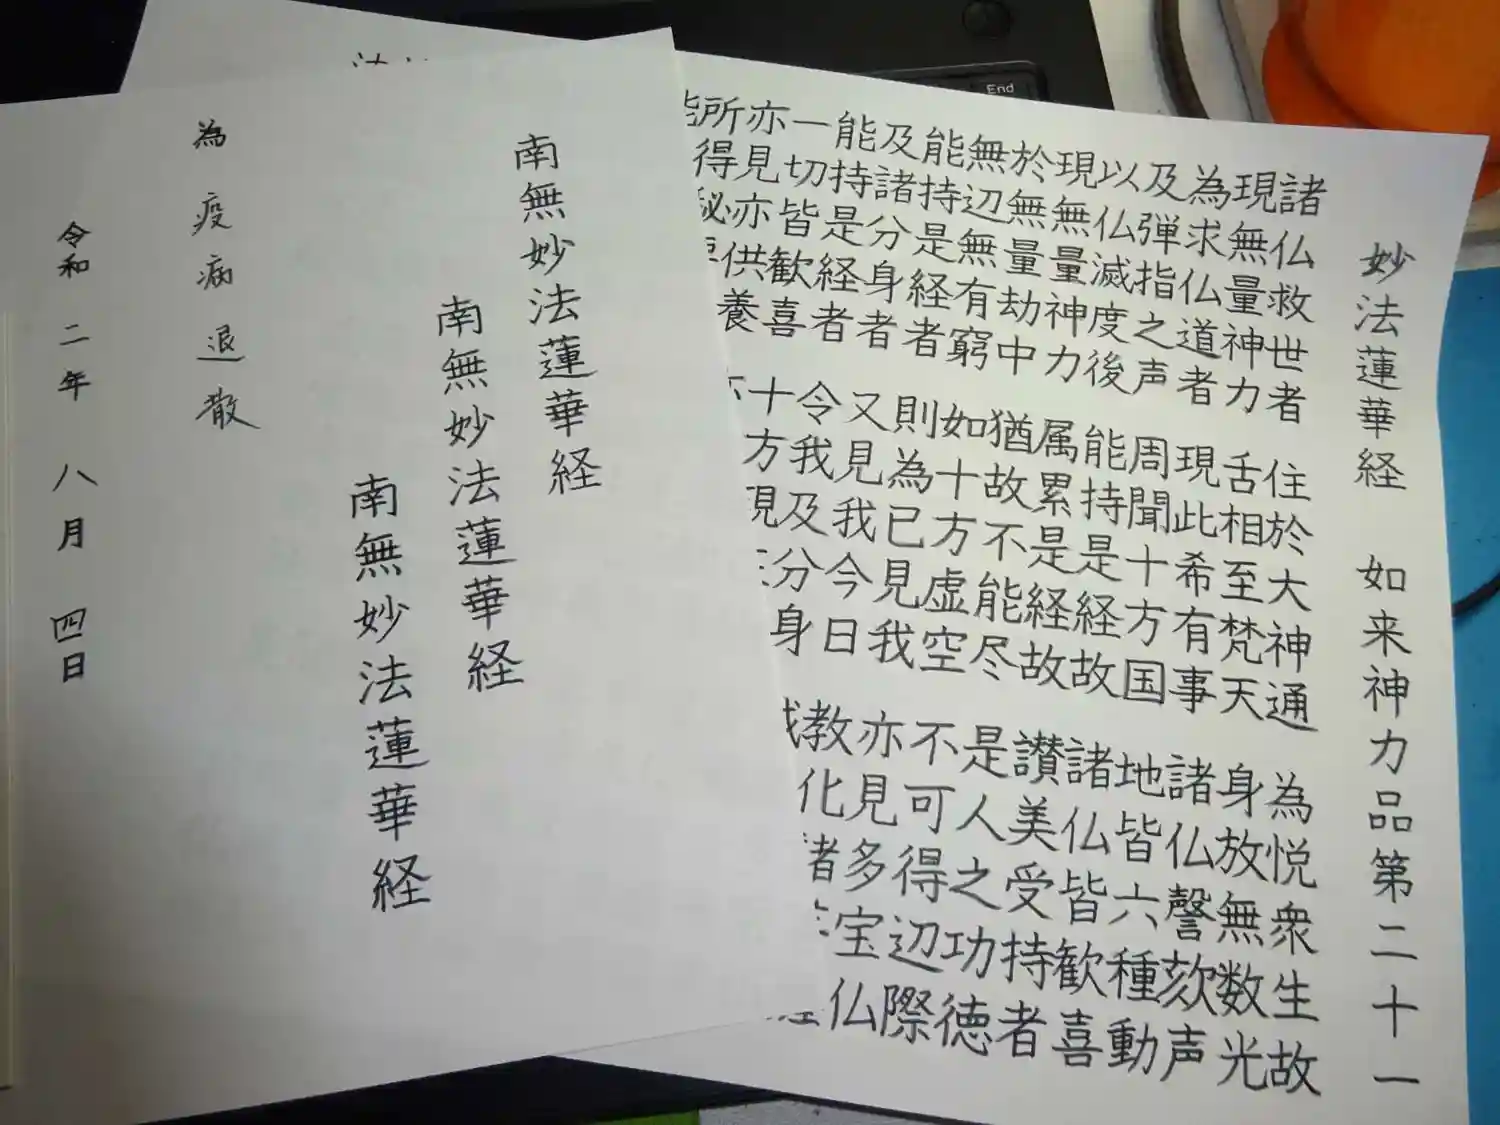 妙法蓮華経 如来神力品第二十一
諸仏救世者 住於大神通 為悦衆生故
現無量神力 舌相至梵天 身放無数光
為求仏道者 現此希有事 諸仏謦欬声
及弾指之声 周聞十方国 地皆六種動
以仏滅度後 能持是経故 諸仏皆歓喜
現無量神力 属累是経故 讃美受持者
於無量劫中 猶故不能尽 是人之功徳
無辺無有窮 如十方虚空 不可得辺際
能持是経者 則為已見我 亦見多宝仏
及諸分身者 又見我今日 教化諸
能持是経者 令我及分身
一切皆歓喜 十方現
亦見亦供養 亦
所得秘
南無妙法蓮華経
南無妙法蓮華経
南無妙法蓮華経
為疫病退散
令和二年 八月 四日
End